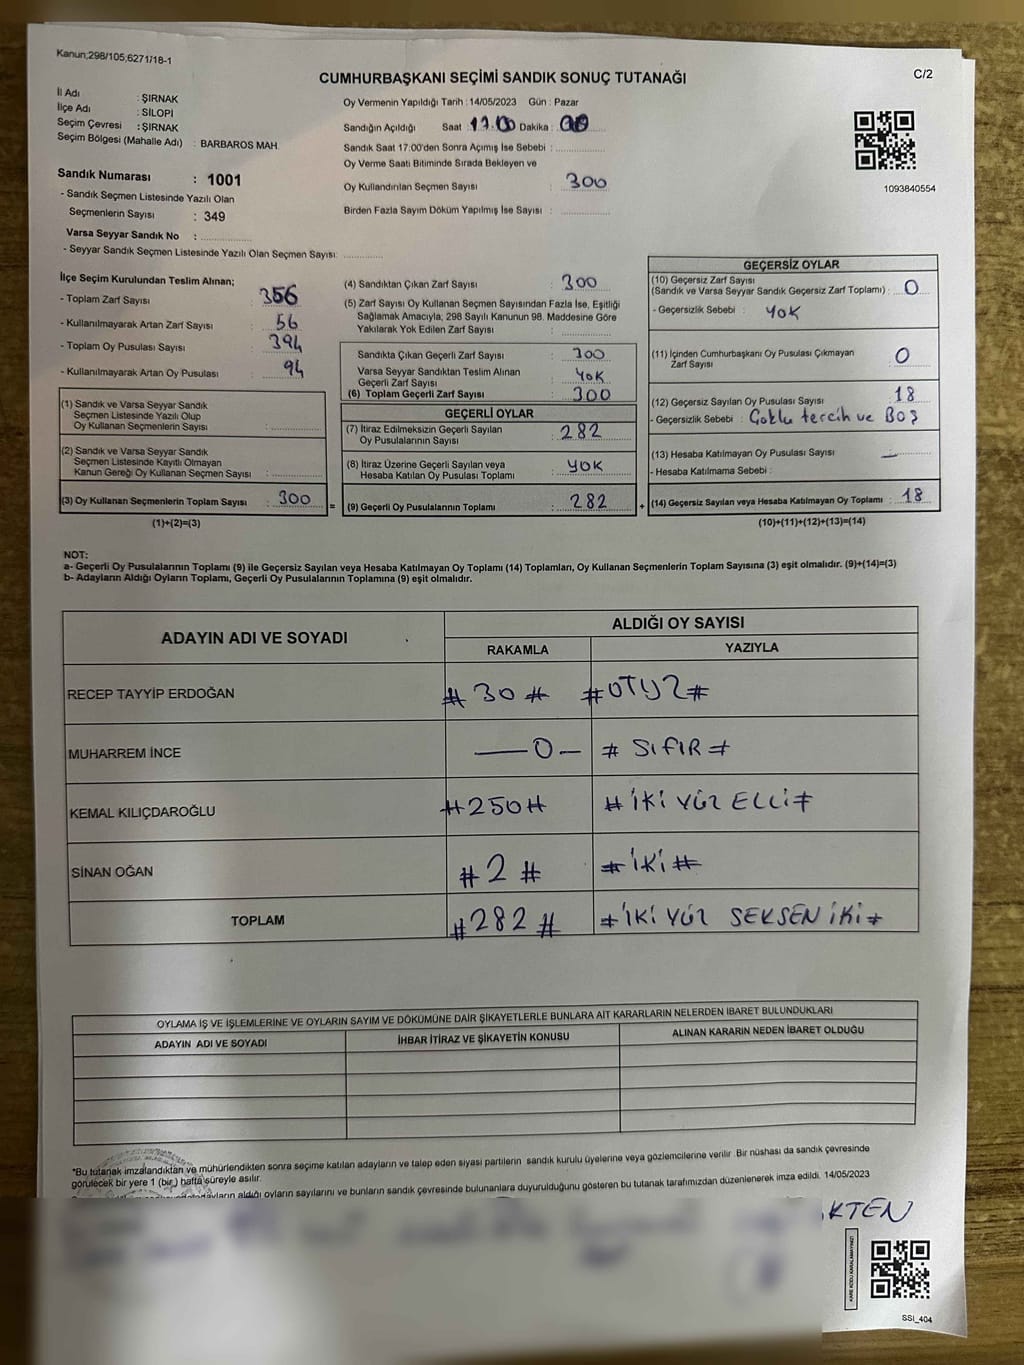 Kanun;298/105;6271/18-1
C/2
CUMHURBAŞKANI SEÇİMİ SANDIK SONUÇ TUTANAĞI
İl Adı : ŞIRNAK
İlçe Adı : SİLOPİ
Seçim Çevresi : ŞIRNAK
Seçim Bölgesi (Mahalle Adı) : BARBAROS MAH.
Sandık Numarası : 1001
- Sandık Seçmen Listesinde Yazılı Olan
Seçmenlerin Sayısı : 349
Varsa Seyyar Sandık No :
- Seyyar Sandık Seçmen Listesinde Yazılı Olan Seçmen Sayısı:
Oy Vermenin Yapıldığı Tarih : 14/05/2023 Gün : Pazar
Sandığın Açıldığı Saat : 17.00 Dakika : 00
Sandık Saat 17:00'den Sonra Açımış İse Sebebi :
Oy Verme Saati Bitiminde Sırada Bekleyen ve
Oy Kullandırılan Seçmen Sayısı : 300
Birden Fazla Sayım Döküm Yapılmış İse Sayısı :
1093840554
İlçe Seçim Kurulundan Teslim Alınan;
- Toplam Zarf Sayısı : 356
- Kullanılmayarak Artan Zarf Sayısı : 56
- Toplam Oy Pusulası Sayısı : 394
- Kullanılmayarak Artan Oy Pusulası : 94
(1) Sandık ve Varsa Seyyar Sandık
Seçmen Listesinde Yazılı Olup
Oy Kullanan Seçmenlerin Sayısı :
(2) Sandık ve Varsa Seyyar Sandık
Seçmen Listesinde Kayıtlı Olmayan
Kanun Gereği Oy Kullanan Seçmen Sayısı :
(3) Oy Kullanan Seçmenlerin Toplam Sayısı : 300
(1)+(2)=(3)
(4) Sandıktan Çıkan Zarf Sayısı : 300
(5) Zarf Sayısı Oy Kullanan Seçmen Sayısından Fazla İse, Eşitliği
Sağlamak Amacıyla; 298 Sayılı Kanunun 98. Maddesine Göre
Yakılarak Yok Edilen Zarf Sayısı :
Sandıkta Çıkan Geçerli Zarf Sayısı : 300
Varsa Seyyar Sandıktan Teslim Alınan
Geçerli Zarf Sayısı : YOK
(6) Toplam Geçerli Zarf Sayısı : 300
GEÇERLİ OYLAR
(7) İtiraz Edilmeksizin Geçerli Sayılan
Oy Pusulalarının Sayısı : 282
(8) İtiraz Üzerine Geçerli Sayılan veya
Hesaba Katılan Oy Pusulası Toplamı : YOK
= (9) Geçerli Oy Pusulalarının Toplamı : 282 +
GEÇERSİZ OYLAR
(10) Geçersiz Zarf Sayısı
(Sandık ve Varsa Seyyar Sandık Geçersiz Zarf Toplamı) : 0
- Geçersizlik Sebebi : YOK
(11) İçinden Cumhurbaşkanı Oy Pusulası Çıkmayan
Zarf Sayısı : 0
(12) Geçersiz Sayılan Oy Pusulası Sayısı : 18
- Geçersizlik Sebebi : Çoklu tercih ve BOŞ
(13) Hesaba Katılmayan Oy Pusulası Sayısı : —
- Hesaba Katılmama Sebebi :
(14) Geçersiz Sayılan veya Hesaba Katılmayan Oy Toplamı : 18
(10)+(11)+(12)+(13)=(14)
NOT:
a- Geçerli Oy Pusulalarının Toplamı (9) ile Geçersiz Sayılan veya Hesaba Katılmayan Oy Toplamı (14) Toplamları, Oy Kullanan Seçmenlerin Toplam Sayısına (3) eşit olmalıdır. (9)+(14)=(3)
b- Adayların Aldığı Oyların Toplamı, Geçerli Oy Pusulalarının Toplamına (9) eşit olmalıdır.
ADAYIN ADI VE SOYADI ALDIĞI OY SAYISI
RAKAMLA YAZIYLA
RECEP TAYYİP ERDOĞAN # 30 # # OTUZ #
MUHARREM İNCE — 0 — # SIFIR #
KEMAL KILIÇDAROĞLU # 250 # # İKİ YÜZ ELLİ #
SİNAN OĞAN # 2 # # İKİ #
TOPLAM # 282 # # İKİ YÜZ SEKSEN İKİ #
OYLAMA İŞ VE İŞLEMLERİNE VE OYLARIN SAYIM VE DÖKÜMÜNE DAİR ŞİKAYETLERLE BUNLARA AİT KARARLARIN NELERDEN İBARET BULUNDUKLARI
ADAYIN ADI VE SOYADI İHBAR İTİRAZ VE ŞİKAYETİN KONUSU ALINAN KARARIN NEDEN İBARET OLDUĞU
*Bu tutanak imzalandıktan ve mühürlendikten sonra seçime katılan adayların ve talep eden siyasi partilerin sandık kurulu üyelerine veya gözlemcilerine verilir. Bir nüshası da sandık çevresinde
görülecek bir yere 1 (bir) hafta süreyle asılır.
aldığı oyların sayılarını ve bunların sandık çevresinde bulunanlara duyurulduğunu gösteren bu tutanak tarafımızdan düzenlenerek imza edildi. 14/05/2023
KTEN
KARE KODU KARALAMAYINIZ!
SSI_404